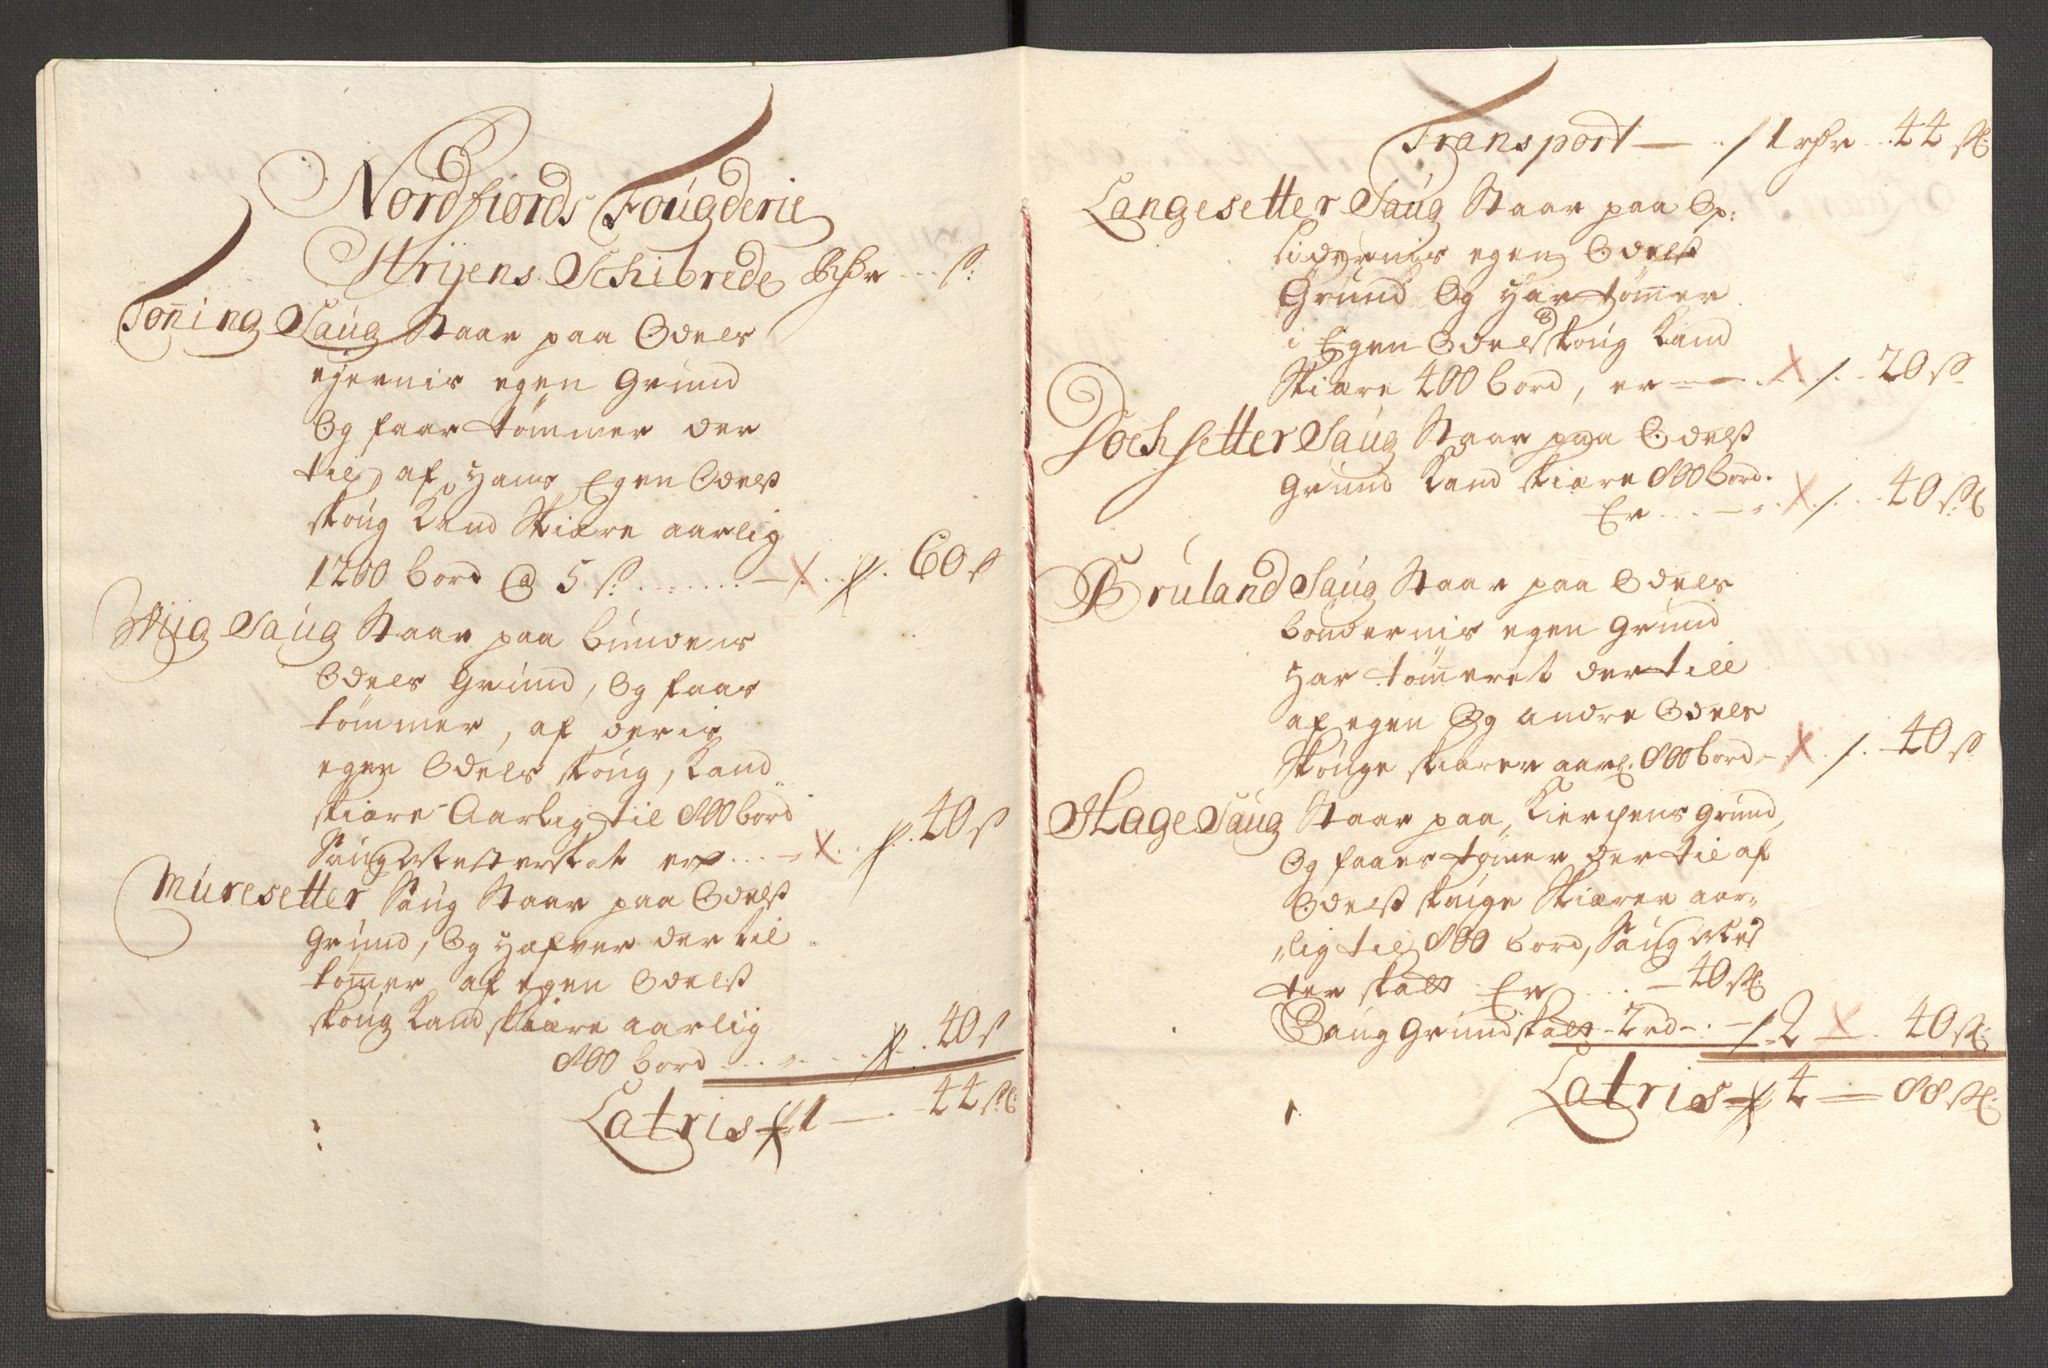 Nordfiords Fougderie
Strijens Schibrede Rdr --- s:
Toning Saug Staar paa Odels
ejernis egen Grund
Og faar tømmer der
til af Hans Egen Odelss
skoug Kand Skiære aarlig
1200 bord @ 5 s ........ - X .. / . 60 s
Wiig Saug Staar paa bundens
Odels Grund, Og faar
tømmer, af deris
egen Odels skoug, Kand
skiære Aarlig til 800 bord
Saug Mesterskat er ... - X .. / . 40 s
Muresetter Saug Staar paa Odelss
Grund, Og Hafver der til
tømer af egen Odelss
skoug Kand skiære aarlig
800 bord ........ / . 40 s
Latris / 1 - . 44 sl:
Transport — . / 1 rdr .. 44 sl:
Langesetter Saug Staar paa Op:
sidernis egen Odelss
Grund Og Har tømer
i Egen Odels skoug Kand
Skiære 400 bord, er — . X / . - 20 s
Sochsetter Saug Staar paa Odelss
Grund Kand skiære 800 bord.
Er .... - . X / . . 40 sl
Bruland Saug Staar paa Odels
bøndernis egen Grund
Har tømeret der till
af egen Og andre Odels
Skouge skiærer aarl. 800 bord - X . / . 40 s
Hage Saug Staar paa Kierchens Grund,
Og faaer tømer der til af
Odelss skouge Skiærer aar-
lig til 800 bord, Saug Mes
ter skatt Er .... - 40 sl:
Saug Grundskatt - 2 rd - . - / 2 X . 40 sl:
Latris / 4 — 88 sl: